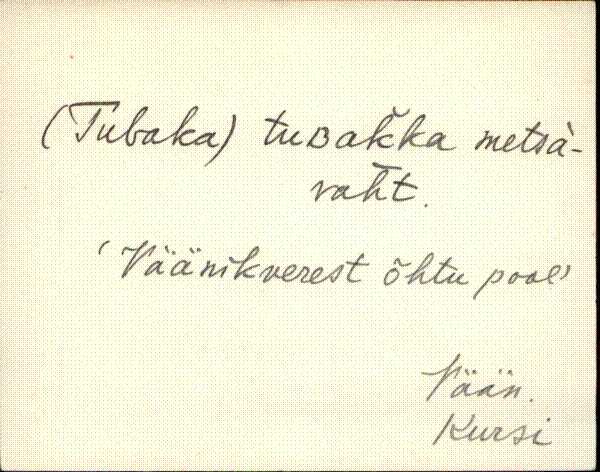 (Tubaka) tuʙak̆ka metsà-
vah̄t.
'Väänikverest õhtu pool'
Vään.
Kursi